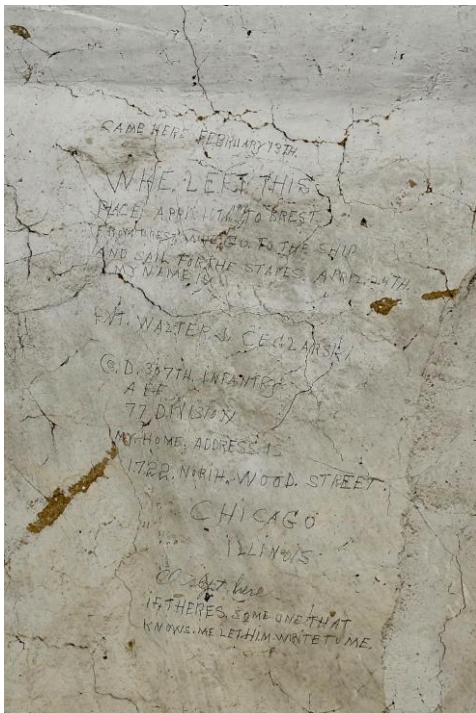 CAME HERE FEBRUARY 13TH.
WHE. LEFT THIS
PLACE, APRIL 10TH TO BREST
FROM BREST WHE. GO. TO THE SHIP
AND SAIL FOR THE STATES APRIL. 24TH.
MY NAME IS
WALTER J. CEGLARSKI
CO. D. 307TH. INFANTRY
AEF
77 DIVISION
MY HOME, ADDRESS IS
1722. NORTH. WOOD. STREET.
CHICAGO
ILLINOIS
here
IF THERES. SOME ONE THAT
KNOWS. ME LET HIM WRITE TO ME.